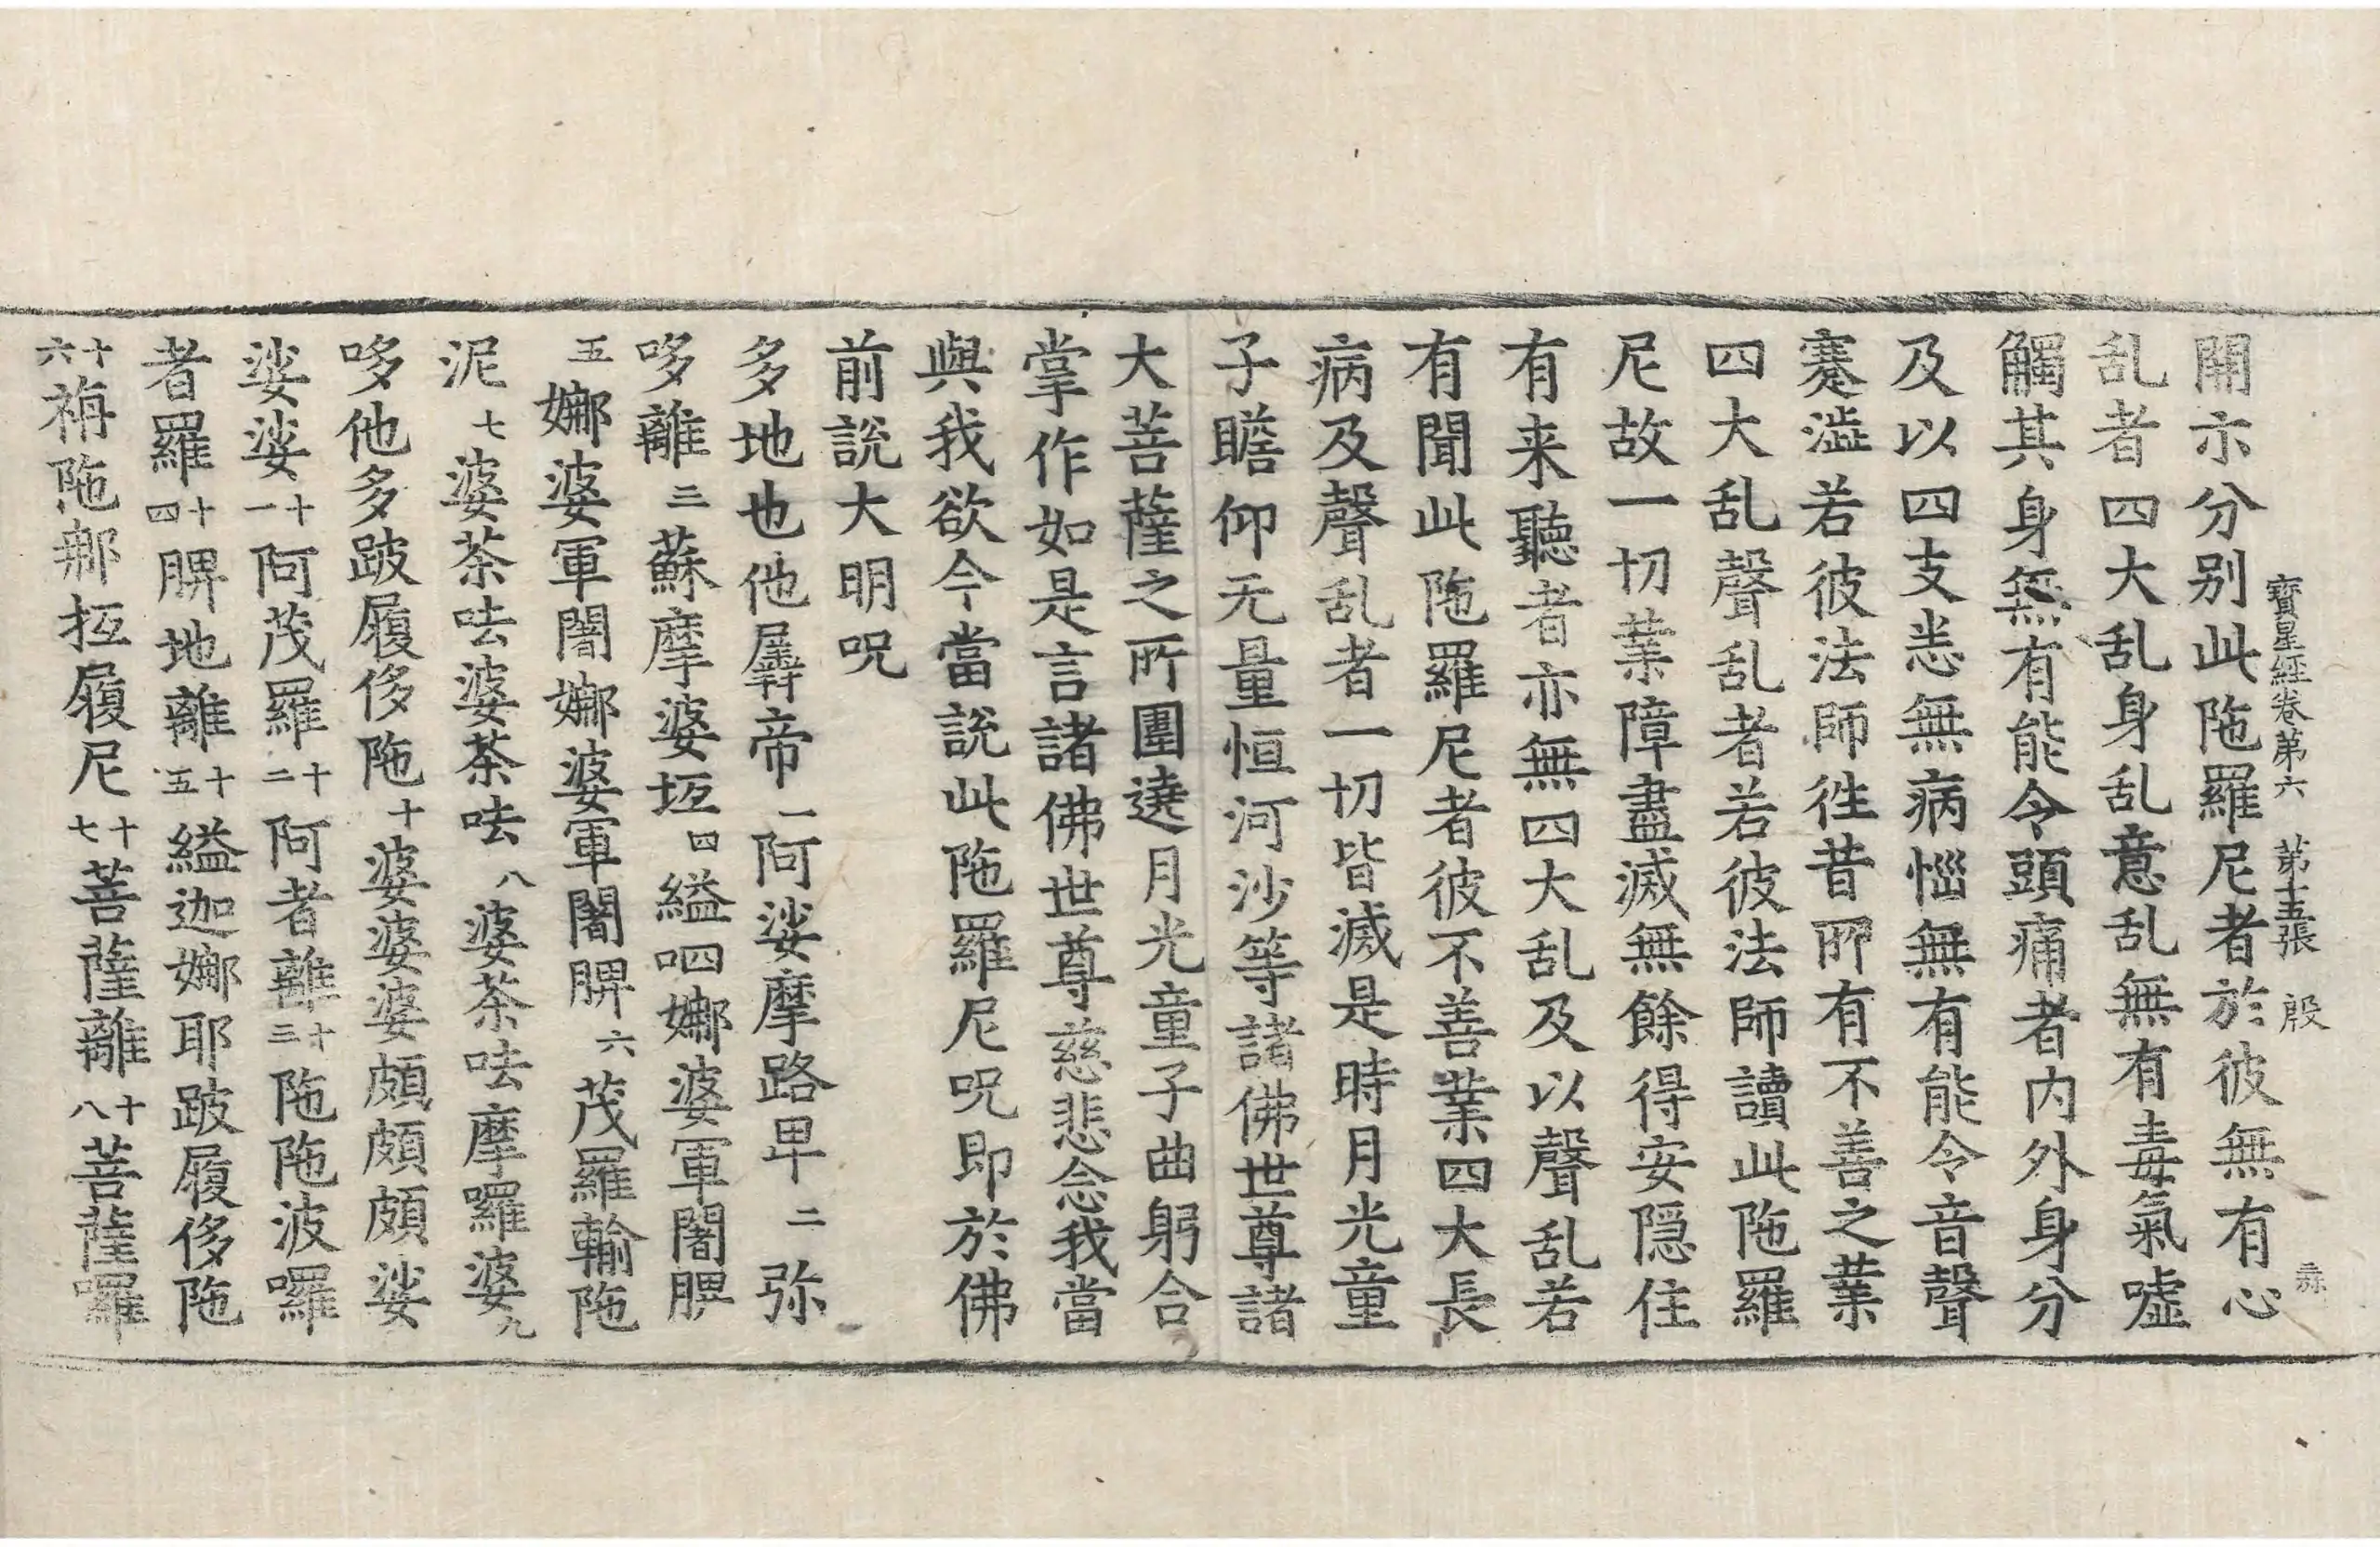 寶星經卷第六 第十五張 殷
開示分別此陁羅尼者於彼無有心
乱者四大乱身乱意乱無有毒氣嘘
觸其身無有能令頭痛者内外身分
及以四支悉無病惱無有能令音聲
蹇澁若彼法師徃昔所有不善之業
四大乱聲乱者若彼法師讀此陁羅
尼故一切業障盡滅無餘得安隱住
有来聽者亦無四大乱及以聲乱若
有聞此陁羅尼者彼不善業四大長
病及聲乱者一切皆滅是時月光童
子瞻仰无量恒河沙等諸佛世尊諸
大菩薩之所圍遶月光童子曲躬合
掌作如是言諸佛世尊慈悲念我當
與我欲今當說此陁羅尼呪即於佛
前說大明呪
多地也他羼帝一阿娑摩路卑二弥
哆離三蘇摩婆坘四縊呬娜婆軍闍脾
五娜婆軍闍娜婆軍闍脾六茂羅輸陁
泥七婆荼呿婆荼呿八婆荼呿摩囉婆九
哆他多跛履侈陁十婆婆婆頗頗頗娑
娑娑十一阿茂羅十二阿者離十三陁陁波囉
者羅十四脾地離十五縊迦娜耶跛履侈陁
十六祢陁那坘履尼十七菩薩離十八菩薩囉